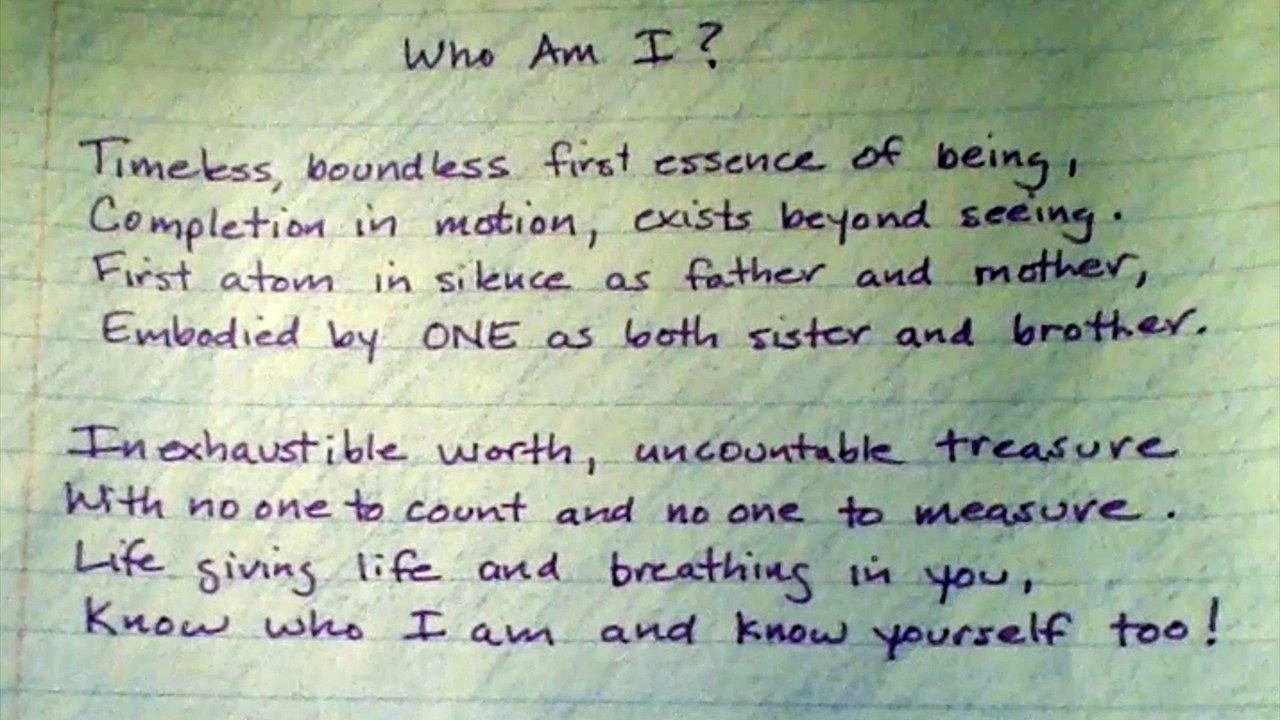 Who Am I?
Timeless, boundless first essence of being,
Completion in motion, exists beyond seeing.
First atom in silence as father and mother,
Embodied by ONE as both sister and brother.
Inexhaustible worth, uncountable treasure
With no one to count and no one to measure.
Life giving life and breathing in you,
Know who I am and know yourself too!